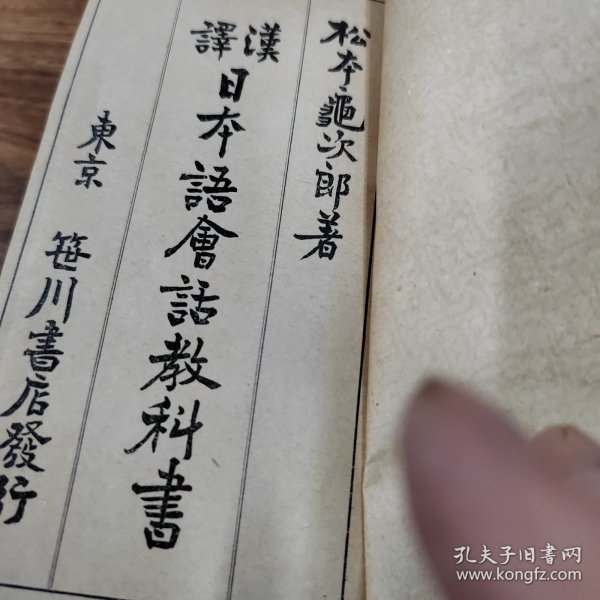 松本龜次郎著
漢譯日本語會話教科書
東京 笹川書店發行
孔夫子旧书网
www.kongfz.com